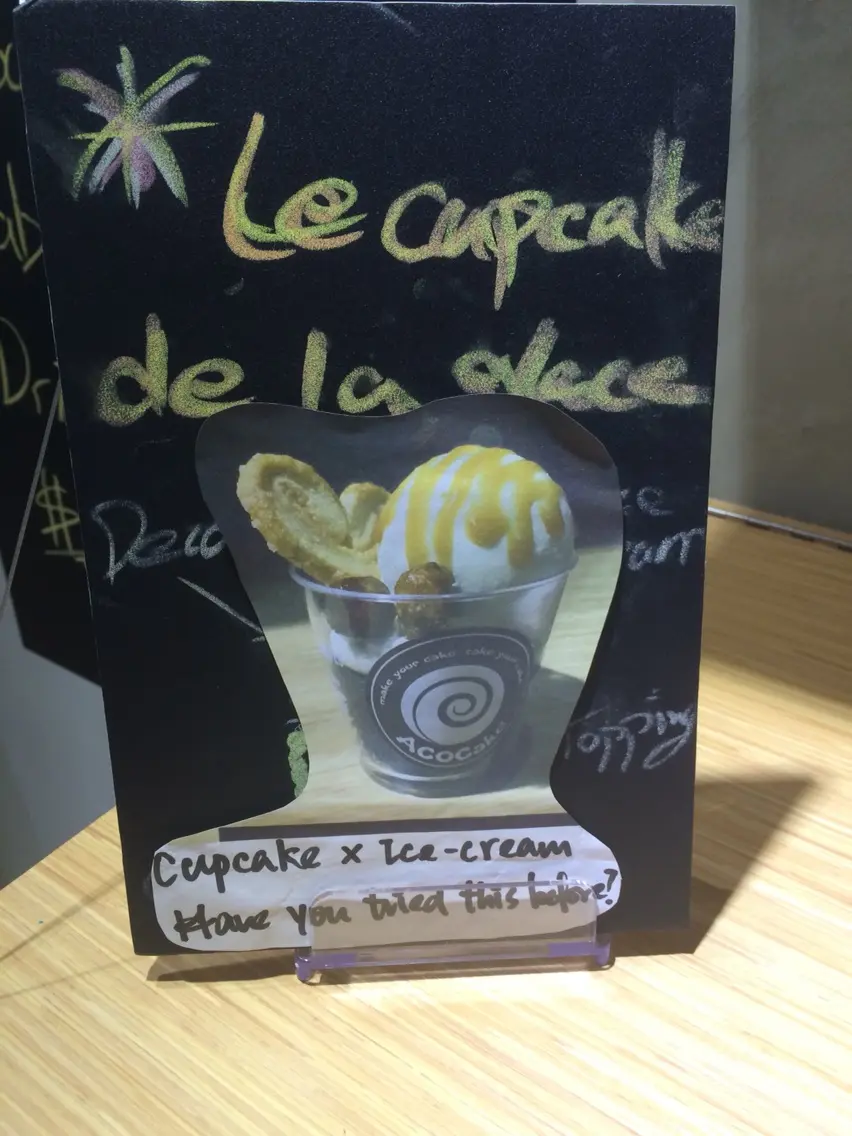 Le Cupcake
de la glace
Topping
make your cake
ACOCake
Cupcake x Ice-cream
Have you tried this before?
$